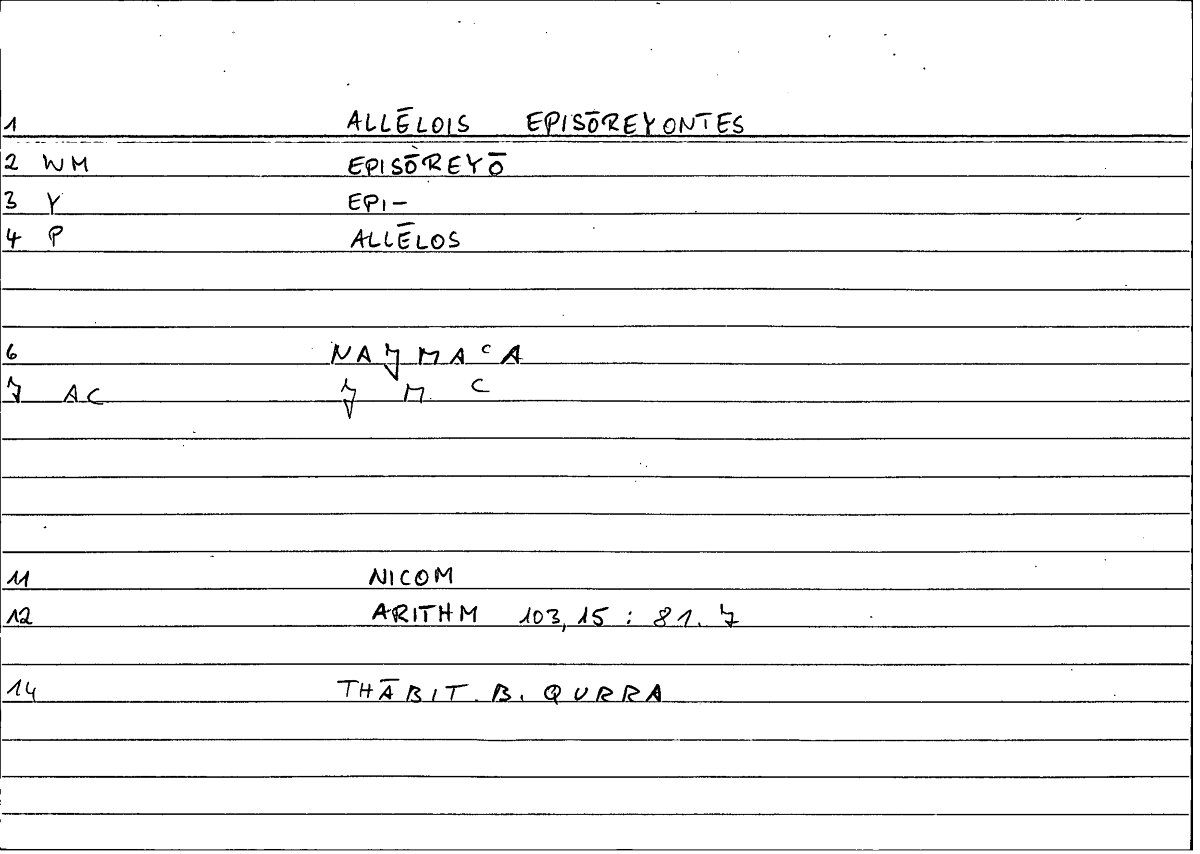 1 ALLĒLOIS EPISŌREYONTES
2 WM EPISŌREYŌ
3 Y EPI-
4 P ALLĒLOS
6 NAJ̬MAᶜA
7 AC J̬ M ᶜ
11 NICOM
12 ARITHM 103,15 : 81.7
14 THĀBIT. B. QURRA